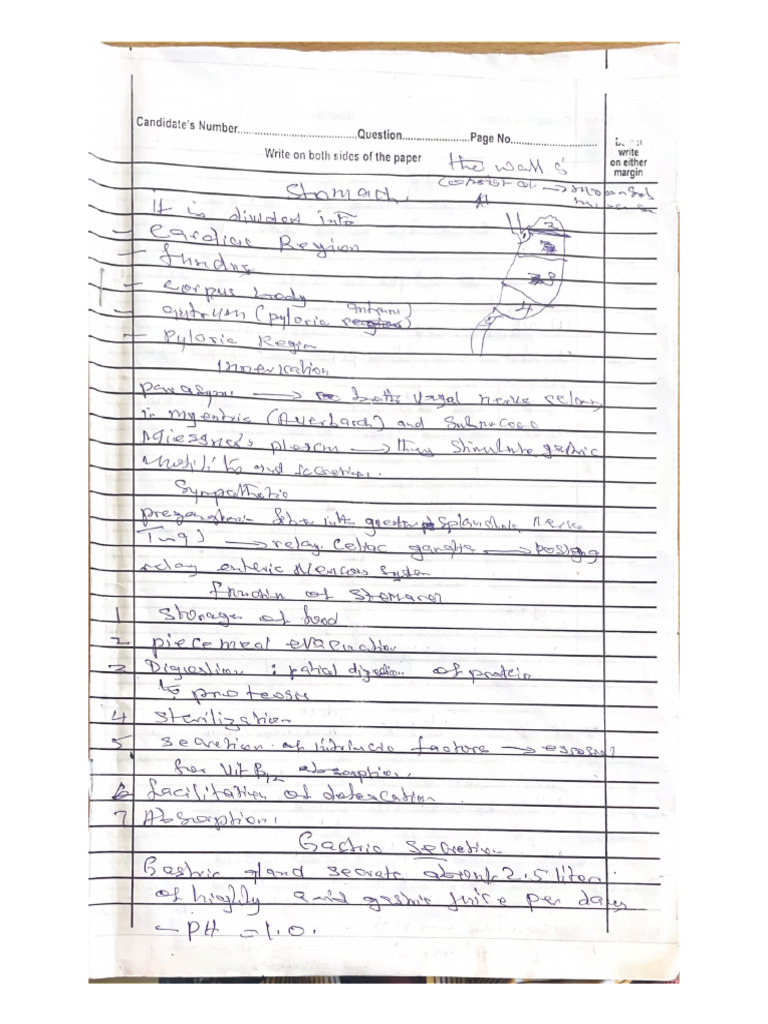 Candidate's Number..............................Question..................Page No........................
Write on both sides of the paper
write
on either
margin
the wall
consist of →
Stomach.
It is divided into
- Cardiac Region
- fundus
- corpus body
- antrum (pyloric antrum)
- Pyloric Region
Innervation
parasym → both vagal nerve relay
in myenteric (Auerbach) and Submucosa
plexus → they stimulate gastric
motility and secretion.
Sympathetic
greater splanchnic nerve
→ relay celiac ganglia →
relay enteric Nervous System
function of stomach
1 storage of food
2 piecemeal evacuation
3 Digestion : patial digestion of protein
to proteose
4 sterilization
5 secretion of intrinsic factors →
for Vit B12 absorption.
6 facilitation of defecation
7 Absorption.
Gastric secretion
Gastric gland secrete about 2.5 liter
of highly acid gastric juice per day
- PH = 1.0.
1
2
3
4